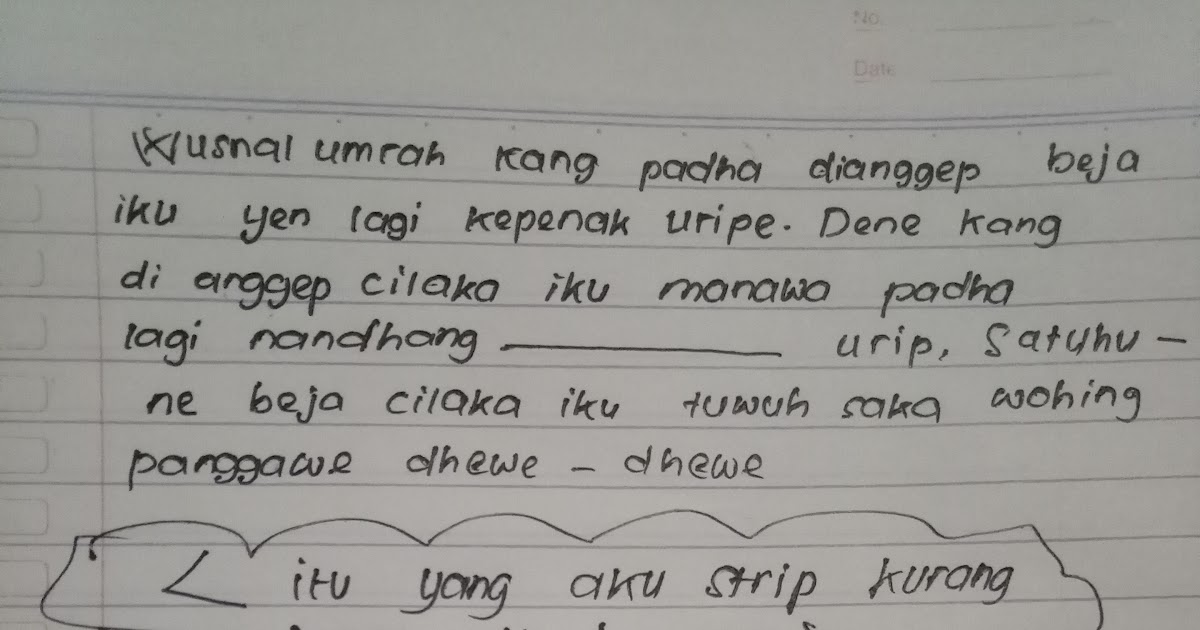 No.
Date
Kusnal umrah kang padha dianggep beja
iku yen lagi kepenak uripe. Dene kang
di anggep cilaka iku manawa padha
lagi nandhang ________ urip, Satuhu -
ne beja cilaka iku tuwuh saka wohing
panggawe dhewe - dhewe
< itu yang aku strip kurang